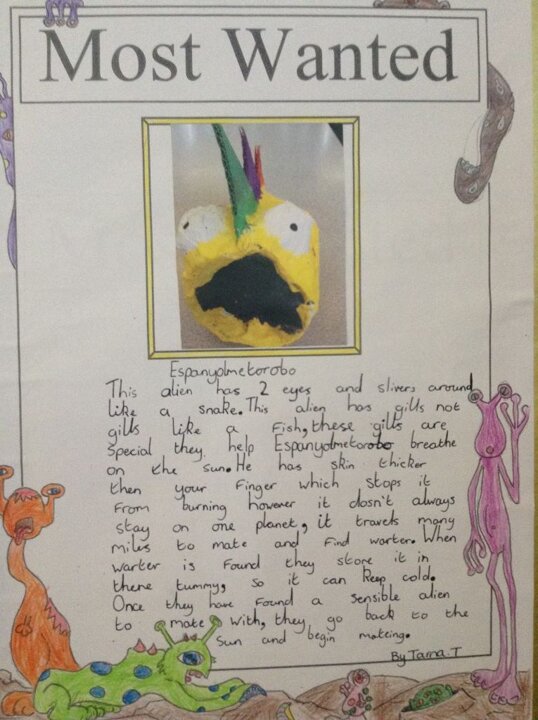 Most Wanted
Espanyolmetorobo
This alien has 2 eyes and slivers around
like a snake. This alien has gills not
gills like a fish, these gills are
special they help Espanyolmetorobo breathe
on the sun. He has skin thicker
then your finger which stops it
from burning however it dosn't always
stay on one planet, it travels many
miles to mate and find warter. When
warter is found they store it in
there tummy, so it can keep cold.
Once they have found a sensible alien
to mate with, they go back to the
sun and begin mateing.
By Tama.T